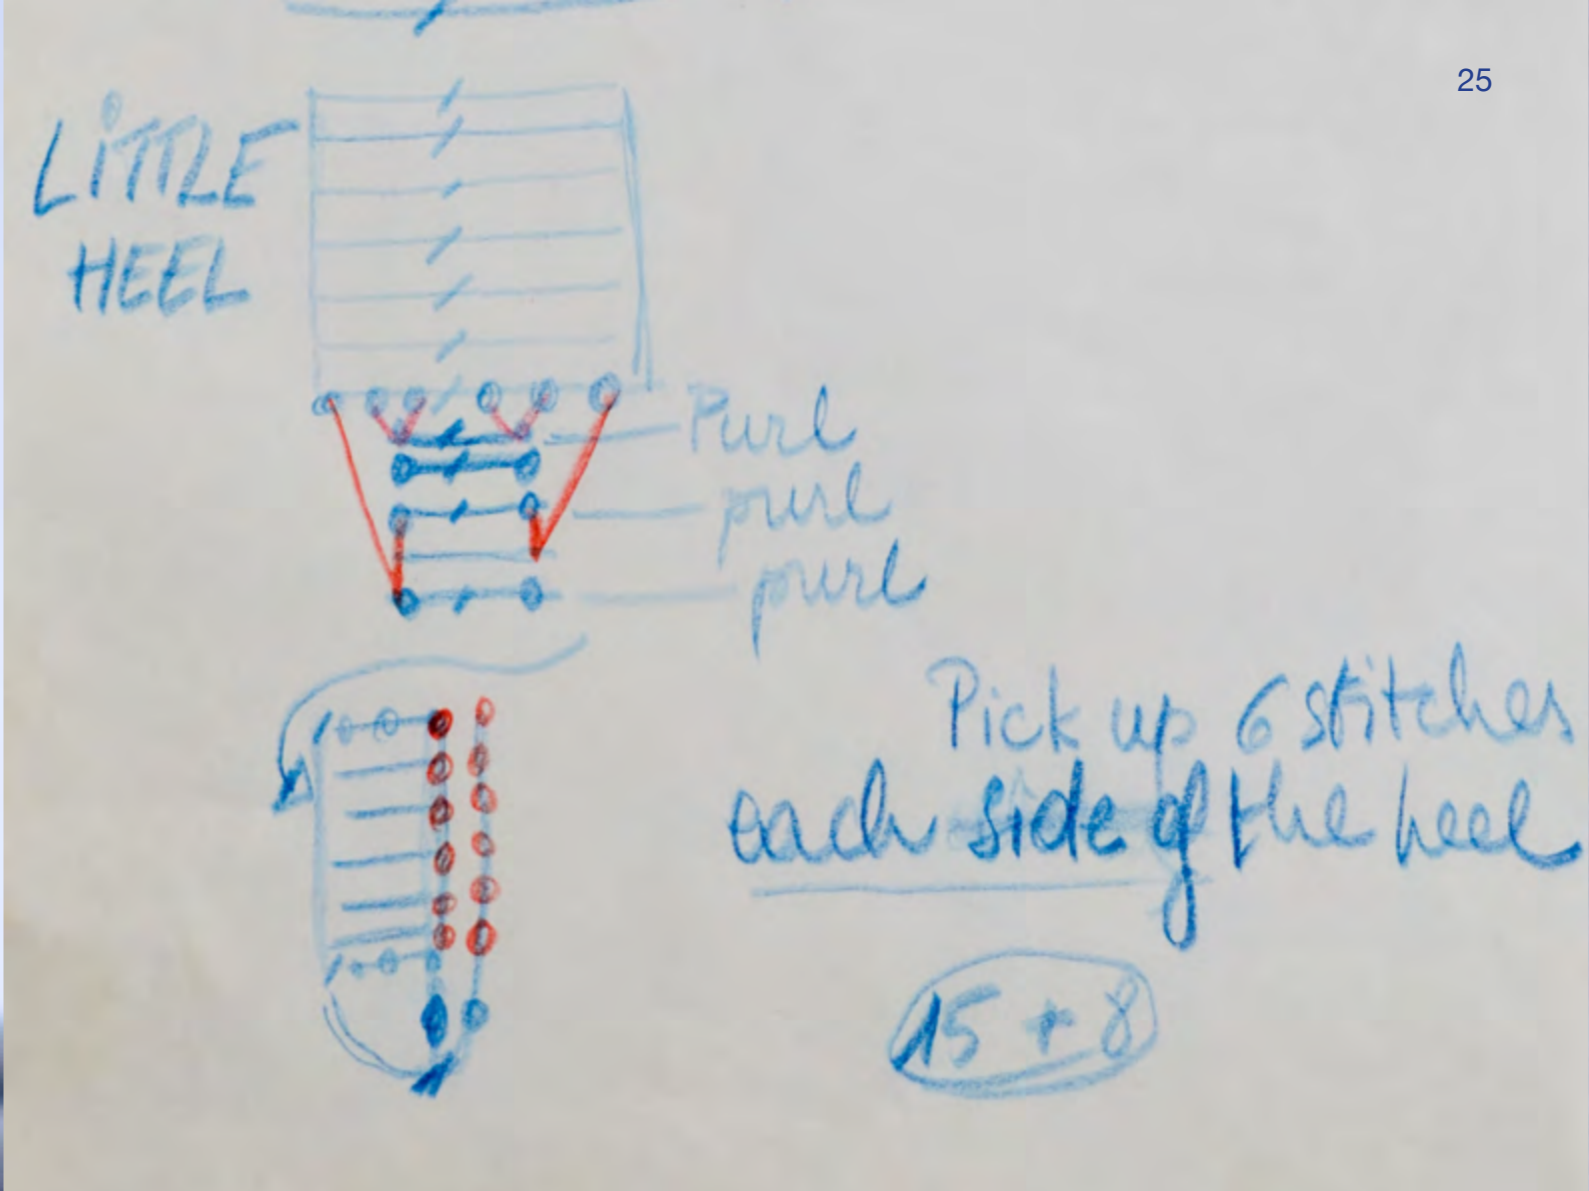 25
LiTTLE
HEEL
Purl
purl
purl
Pick up 6 stitches
each side of the heel
15 + 8